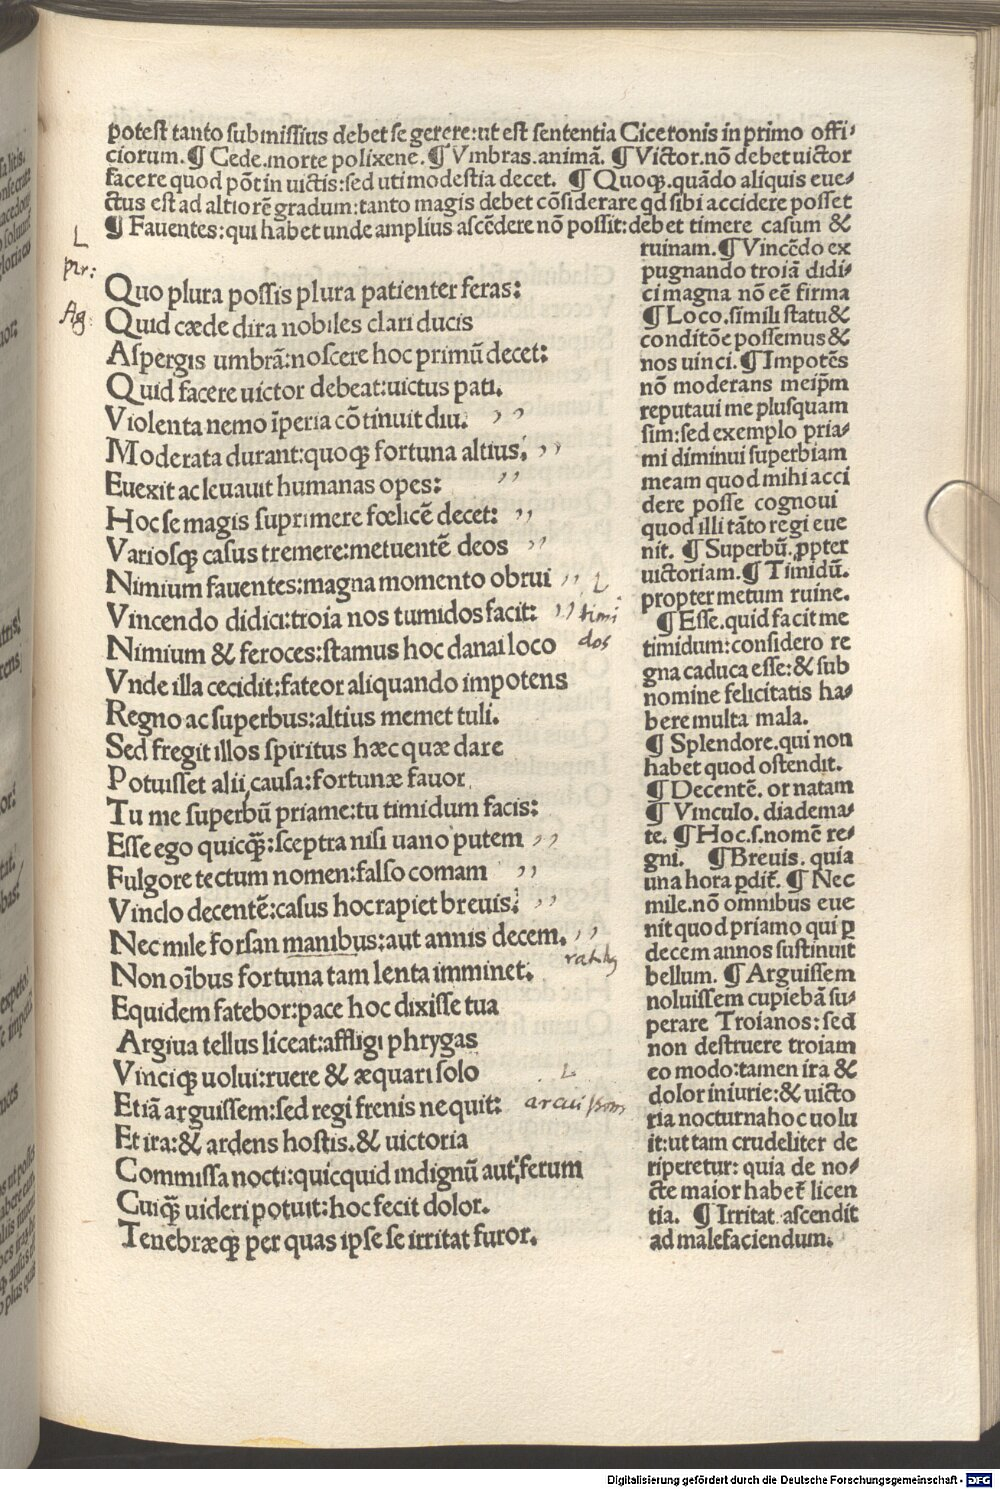 potest tanto submissius debet se gerere:ut est sententia Ciceronis in primo offi⸗
ciorum. ¶ Cede.morte polixene. ¶ Vmbras.animā. ¶ Victor.nō debet uictor
facere quod pōt in uictis:sed uti modestia decet. ¶ Quoqꝫ.quādo aliquis eue⸗
ctus est ad altiorē gradum:tanto magis debet cōsiderare qd sibi accidere posset
¶ Fauentes:qui habet unde amplius ascēdere nō possit:debet timere casum &
ruinam. ¶ Vincēdo ex
pugnando troiā didi⸗
ci magna nō eē firma
¶ Loco.simili statu &
conditōe possemus &
nos uinci. ¶ Impotēs
nō moderans meip̄m
reputaui me plusquam
sim:sed exemplo pria⸗
mi diminui superbiam
meam quod mihi acci
dere posse cognoui
quod illi tāto regi eue
nit. ¶ Superbū.ꝓpter
uictoriam. ¶ Timidū.
propter metum ruine.
¶ Esse.quid facit me
timidum:considero re
gna caduca esse:& sub
nomine felicitatis ha⸗
bere multa mala.
¶ Splendore.qui non
habet quod ostendit.
¶ Decentē. ornatam
¶ Vinculo. diadema⸗
te. ¶ Hoc.s.nomē re⸗
gni. ¶ Breuis. quia
una hora ꝑdit̄. ¶ Nec
mile.nō omnibus eue
nit quod priamo qui ꝑ
decem annos sustinuit
bellum. ¶ Arguissem
noluissem cupiebā su⸗
perare Troianos:sed
non destruere troiam
eo modo:tamen ira &
dolor iniurie:& uicto
ria nocturna hoc uolu
it:ut tam crudeliter de
riperetur: quia de no⸗
cte maior habet̄ licen
tia. ¶ Irritat.ascendit
ad malefaciendum.
L
pir:
Quo plura possis plura patienter feras:
Ag:
Quid cæde dira nobiles clari ducis
Aspergis umbrā:noscere hoc primū decet:
Quid facere uictor debeat:uictus pati.
Violenta nemo īperia cōtinuit diu. ,,
Moderata durant:quoqꝫ fortuna altius. ,,
Euexit ac leuauit humanas opes: ,,
Hoc se magis suprimere fœlicē decet: ,,
Variosqꝫ casus tremere:metuentē deos ,,
Nimium fauentes:magna momento obrui ,, L
Vincendo didici:troia nos tumidos facit: ,, timi
dos
Nimium & feroces:stamus hoc danai loco
Vnde illa cecidit:fateor aliquando impotens
Regno ac superbus:altius memet tuli.
Sed fregit illos spiritus hæc quæ dare
Potuisset alii causa:fortunæ fauor
Tu me superbū priame:tu timidum facis:
Esse ego quicqꝫ̄:sceptra nisi uano putem ,,
Fulgore tectum nomen:falso comam ,,
Vinclo decentē:casus hoc rapiet breuis: ,,
Nec mile forsan manibus:aut annis decem. ,,
ratibꝫ
Non oībus fortuna tam lenta imminet:
Equidem fatebor:pace hoc dixisse tua
Argiua tellus liceat:affligi phrygas
Vinciqꝫ uolui:ruere & æquari solo
L
Etiā arguissem:sed regi frenis nequit: arcuissem
Et ira:& ardens hostis.& uictoria
Commissa nocti:quicquid indignū aut ferum
Cuiqꝫ̄ uideri potuit:hoc fecit dolor.
Tenebræqꝫ per quas ipse se irritat furor.
Digitalisierung gefördert durch die Deutsche Forschungsgemeinschaft - DFG